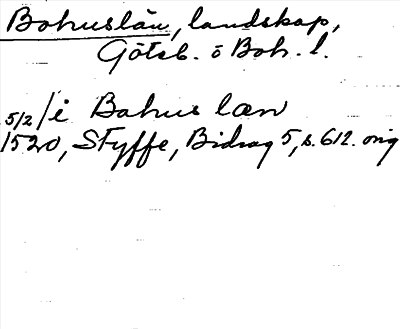 Bohuslän, landskap,
Göteb. o Boh. l.
5/2 / i Bahus læn
1520, Styffe, Bidrag 5, s. 612. orig